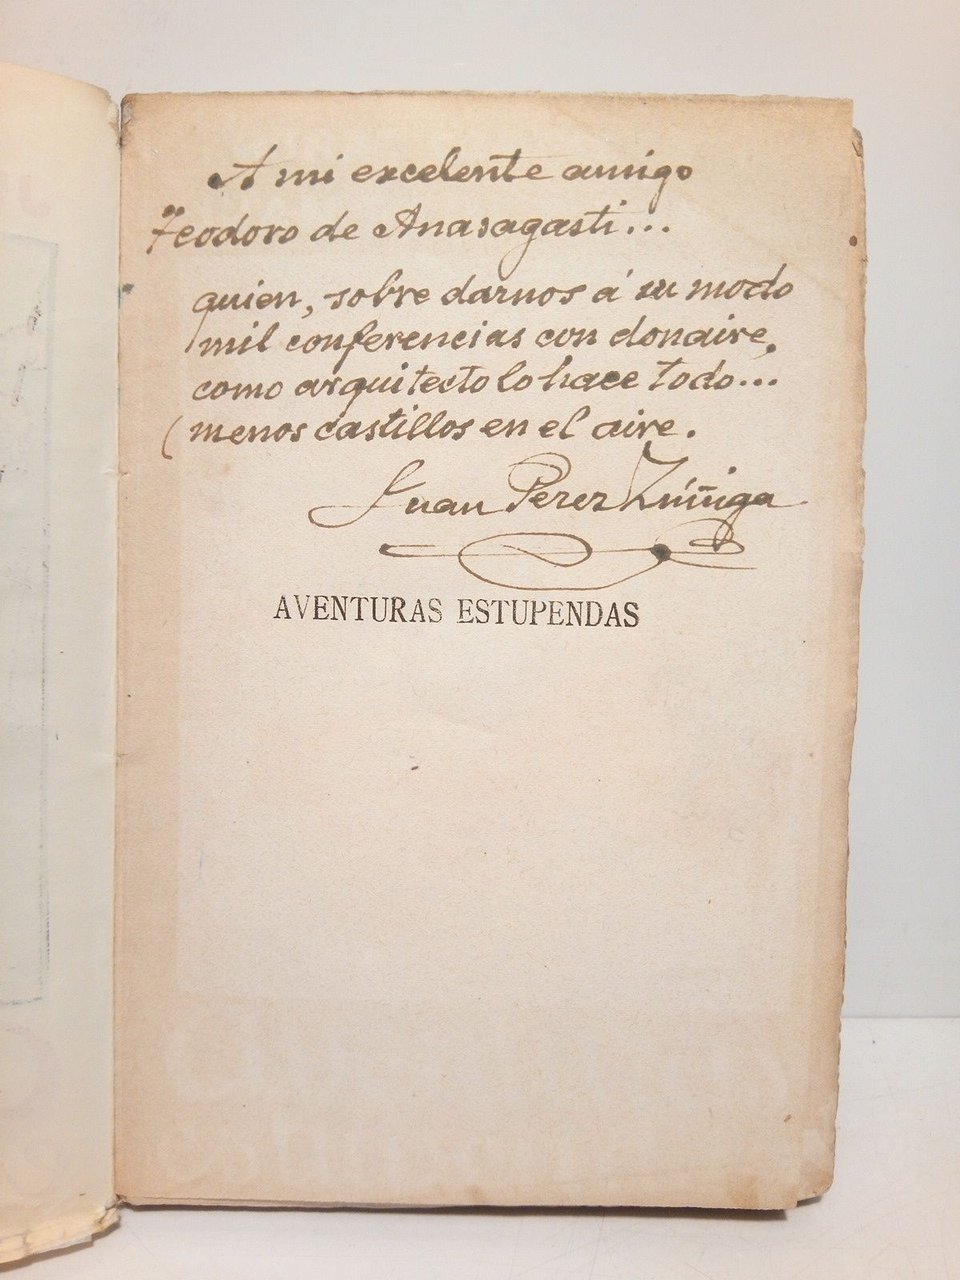 A mi excelente amigo
Teodoro de Anasagasti...
quien, sobre darnos á su modo
mil conferencias con donaire,
como arquitecto lo hace todo...
menos castillos en el aire.
Juan Pérez Zúñiga
AVENTURAS ESTUPENDAS